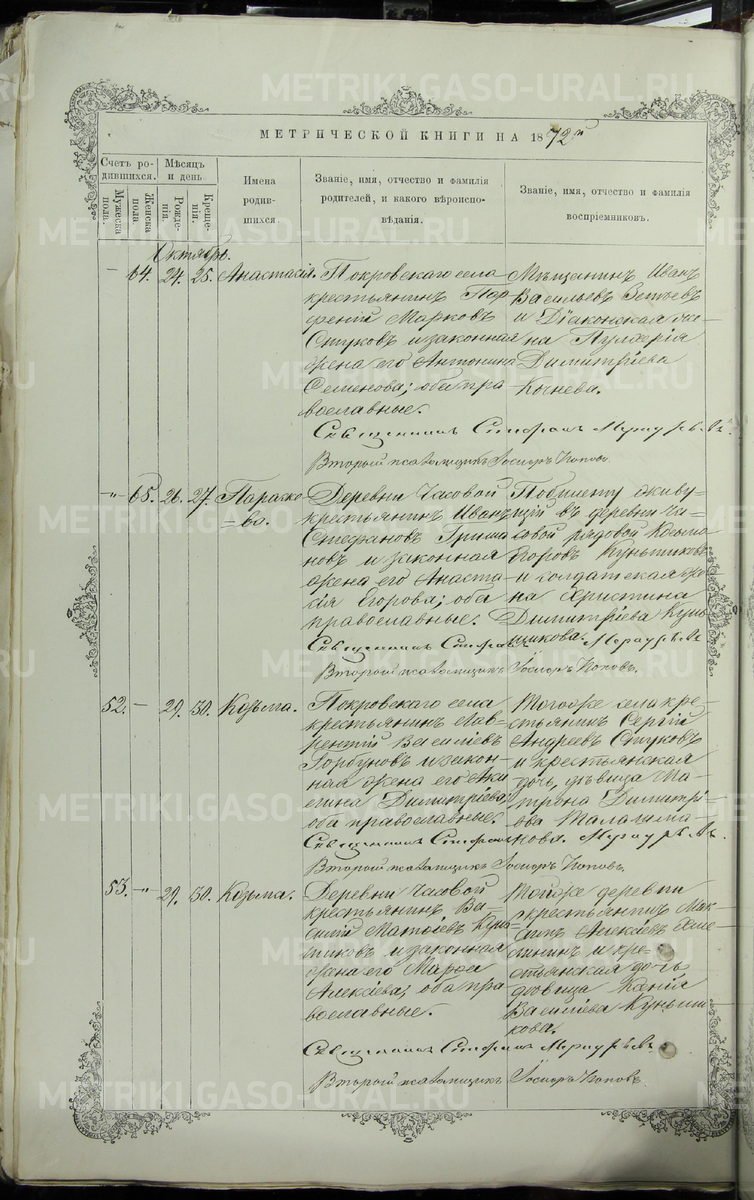 МЕТРИЧЕСКОЙ КНИГИ НА 1872й
Счетъ ро-
дившихся.
Мужеска
пола.
Женска
пола
Мѣсяцъ
и день
Рожде-
нія.
Креще-
нія.
Имена
родив-
шихся
Званіе, имя, отчество и фамилія
родителей, и какого вѣроиспо-
вѣданія.
Званіе, имя, отчество и фамилія
воспріемниковъ.
Октябрь.
— 64. 24. 25. Анастасія.
Покровскаго села
крестьянинъ Пар-
феній Марковъ
Стуковъ и законная
жена его Антонина
Семенова; оба пра
вославные.
Мѣщанинъ Иванъ
Васильевъ
и Діаконская же-
на Пулхерія
Димитріева
Кочнева.
Священникъ Стефанъ
Второй псаломщикъ Іосифъ Поповъ.
„ 65. 26. 27. Параске-
ва.
Деревни Часовой
крестьянинъ Иванъ
Стефановъ Гриша
новъ и законная
жена его Анаста-
сія Егорова; оба
православные.
Побилету живу-
щій въ деревни Ча-
совой рядовой Косьма
Егоровъ Куньщиковъ
и солдатская же
на Христина
Димитріева Кунь
щикова.
Священникъ Стефанъ
Второй псаломщикъ Іосифъ Поповъ.
52. — 29. 30. Козьма.
Покровскаго села
крестьянинъ Лав-
рентій Василіевъ
Горбуновъ и закон-
ная жена его Аки
лина Димитріева,
оба православные.
Тогоже села кре-
стьянинъ Сергій
Андреевъ Стуковъ
и крестьянская
дочь, дѣвица Ма-
трона Димитрі-
ова Талалма
нова.
Священникъ Стефанъ
Второй псаломщикъ Іосифъ Поповъ.
53. „ 29. 30. Козьма.
Деревни Часовой
крестьянинъ Ва-
силій Матѳіевъ Кунь
щиковъ и законная
жена его Марѳа
Алексіева; оба пра
вославные.
Тойже деревни
крестьянинъ Мак-
симъ Алексіевъ
и кре-
стьянская дочь
дѣвица Ксенія
Василіева Куньщи
кова.
Священникъ Стефанъ
Второй псаломщикъ Іосифъ Поповъ.
METRIKI.GASO-URAL.RU